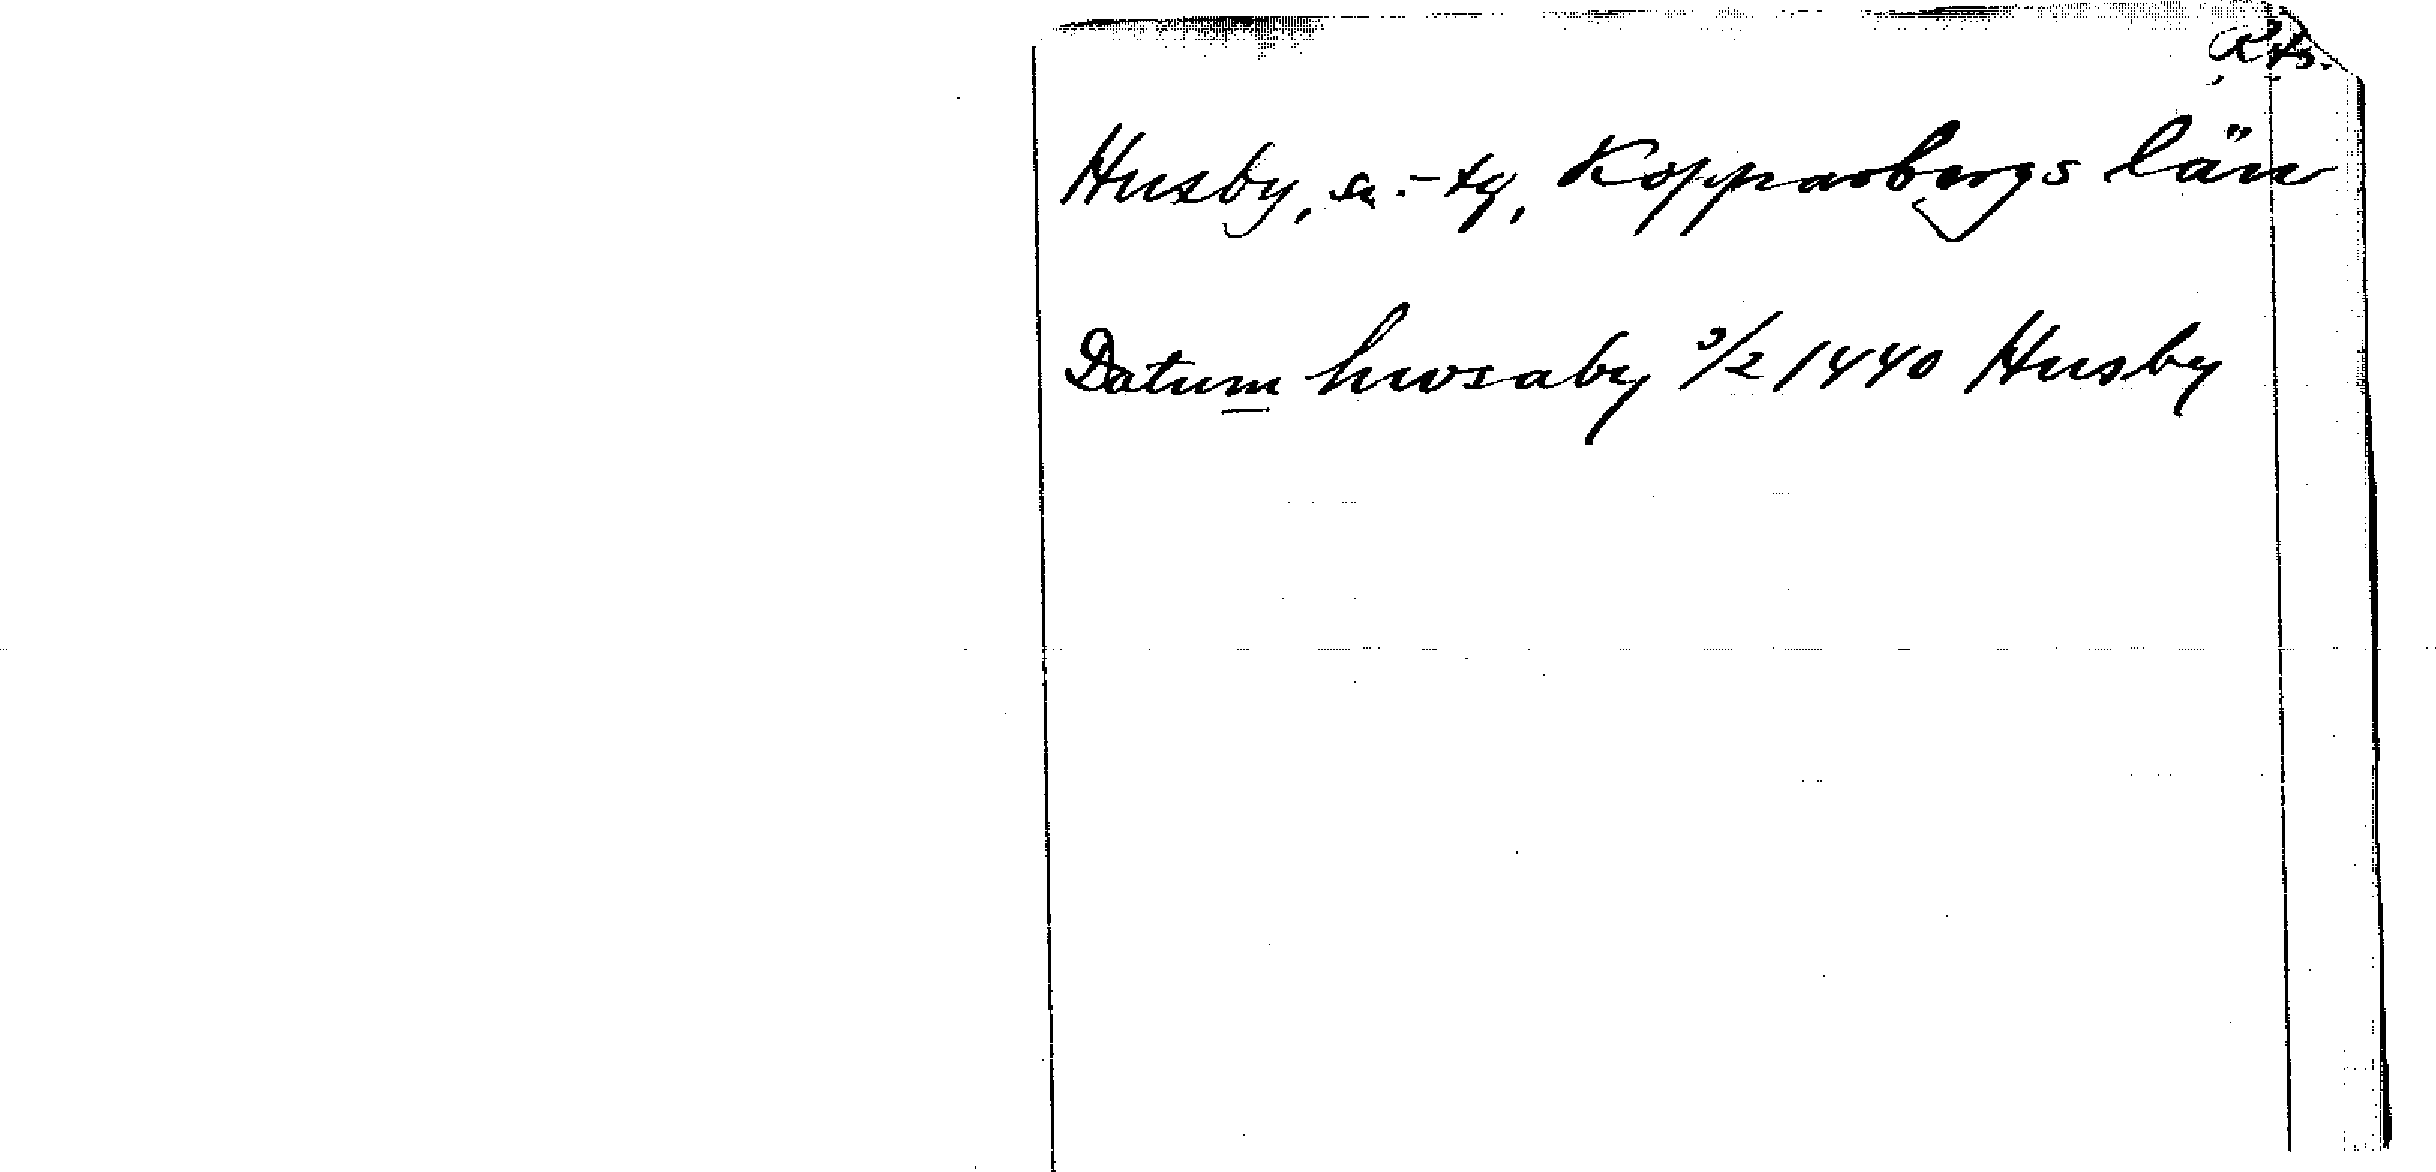 Husby, sn.-tg, Kopparbergs län
Datum hwsaby 3/2 1440 Husby